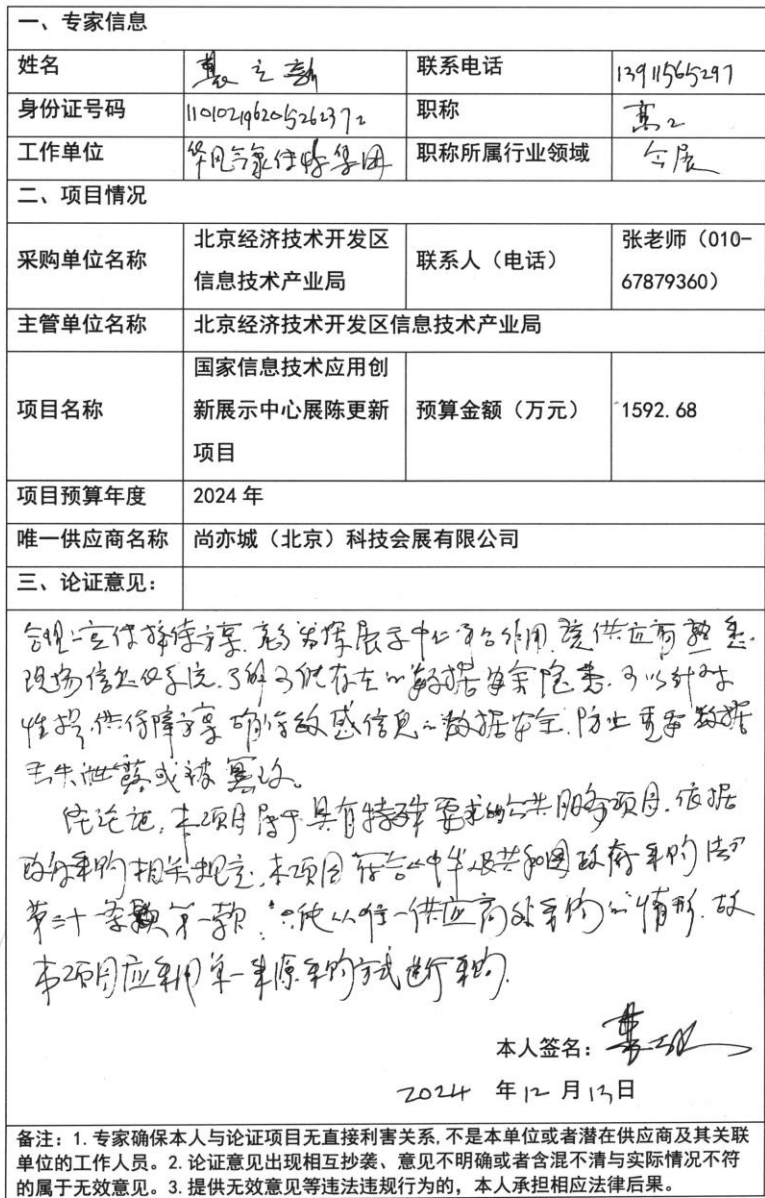 一、专家信息
姓名 联系电话 13911565297
身份证号码 110102196205262372 职称 高工
工作单位 华风气象传媒集团 职称所属行业领域 会展
二、项目情况
采购单位名称 北京经济技术开发区信息技术产业局 联系人（电话） 张老师（010-67879360）
主管单位名称 北京经济技术开发区信息技术产业局
项目名称 国家信息技术应用创新展示中心展陈更新项目 预算金额（万元） 1592.68
项目预算年度 2024 年
唯一供应商名称 尚亦城（北京）科技会展有限公司
三、论证意见：
合理的宣传接待方案，充分发挥展示中心平台作用，该供应商熟悉
现场信息化系统，了解可能存在的数据安全隐患，可以针对
性提供保障方案，确保敏感信息的数据安全，防止重要数据
丢失泄露或被篡改。
经论证，本项目属于具有特殊要求的公共服务项目，依据
政府采购相关规定，本项目符合《中华人民共和国政府采购法》
第三十一条第一款，“只能从唯一供应商处采购”的情形，故
本项目应采用单一来源采购方式进行采购。
本人签名：
2024 年 12 月 13 日
备注：1. 专家确保本人与论证项目无直接利害关系，不是本单位或者潜在供应商及其关联
单位的工作人员。2. 论证意见出现相互抄袭、意见不明确或者含混不清与实际情况不符
的属于无效意见。3. 提供无效意见等违法违规行为的，本人承担相应法律后果。